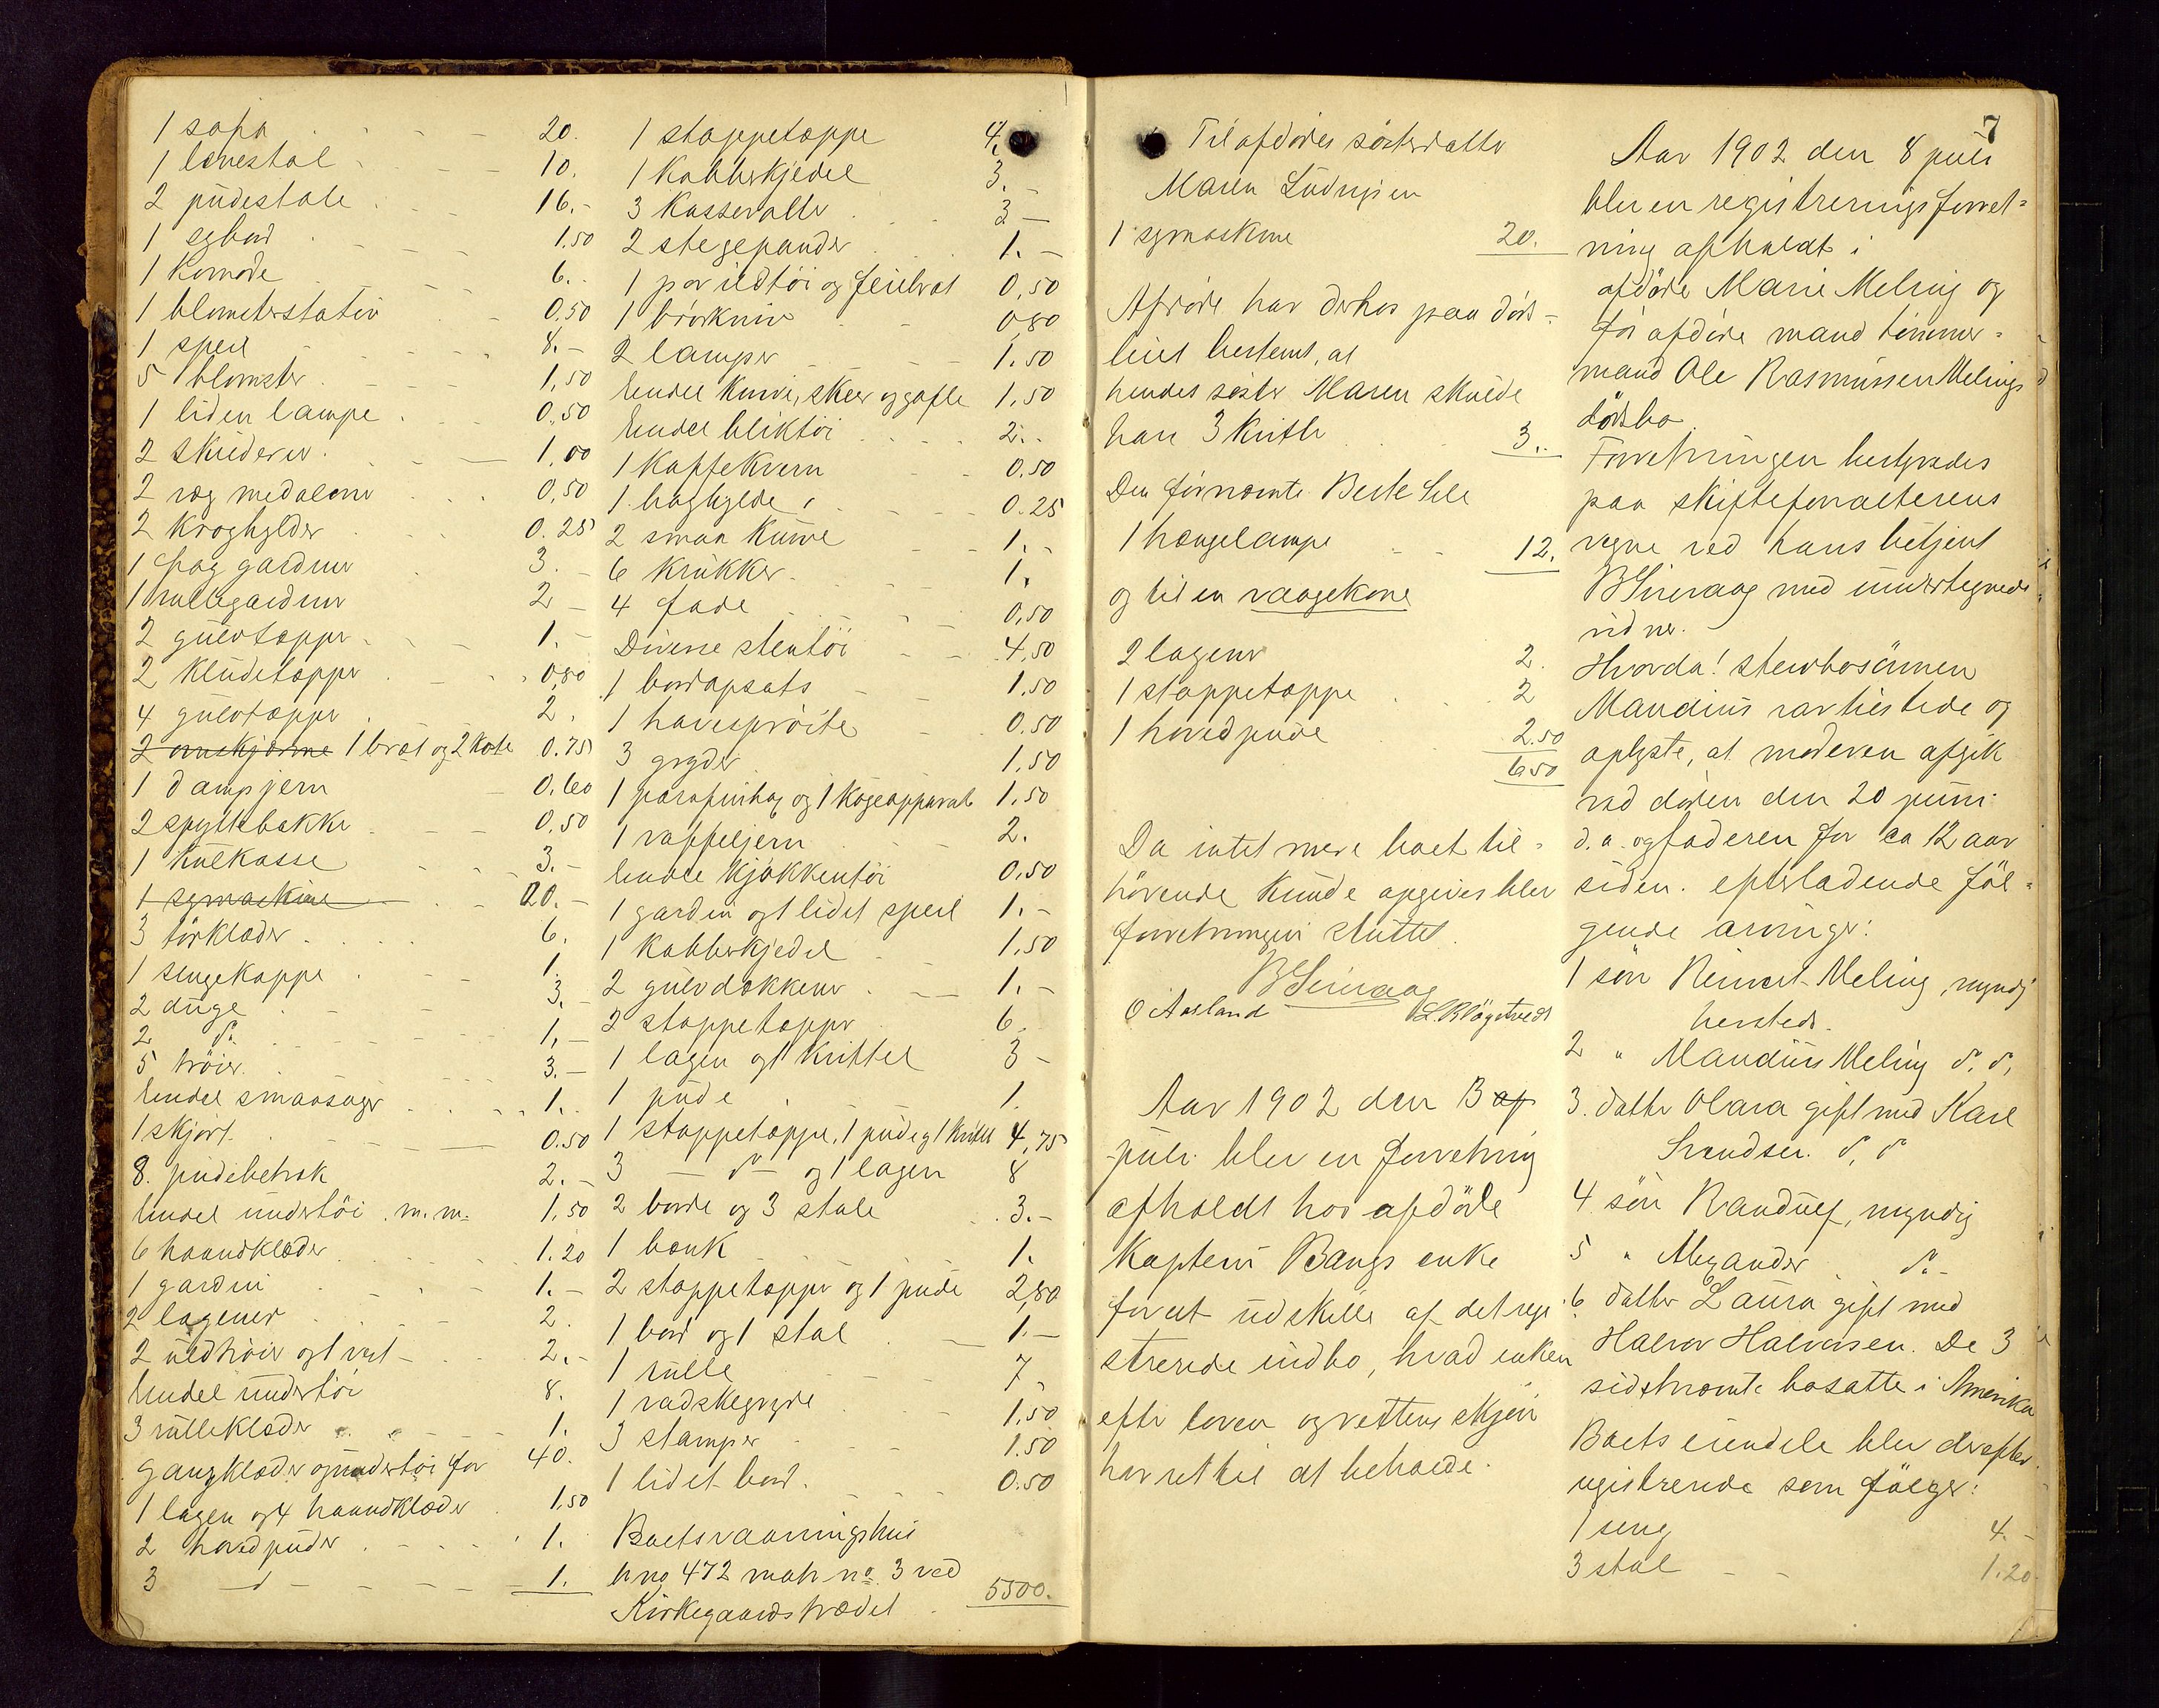 1 sofa 20.
1 lænestol 10.
2 pudestole 16.-
1 sybord 1.50
1 Komode 6.
1 blomsterstativ 0.50
1 speil 8.-
5 blomster 1,50
1 liden lampe 0.50
2 skilderier 1,00
2 væg medaloner 0,50
2 kroghylder 0.25
1 fag gardiner 3.-
1 rullegardiner 2-
2 gulvtæpper 1.-
2 kludetæpper 0,80
4 gulvtæpper 2.
2 ovnskjærme 1 bræt og 2 koste 0.75
1 dampjern 0.60
2 spyttebakke 0,50
1 kulkasse 3.-
1 symaskine 20.-
3 tørklæder 6.
1 sengekappe 1.
2 duge 3.-
2 do. 1,-
5 trøier 3.-
Endel smaasager 1.
1 skjørt 0.50
8. pudebetræk 2.-
Endel undertøi m.m. 1,50
6 haandklæder 1.20
1 gardin 1.-
2 lagener 2.
2 uldtrøier og 1 vest 2.-
Endel undertøi 8.
3 rulleklæder 1.
Gangklæder og undertøi for 40.
1 lagen og 4 haandklæder 1,50
2 hovedpuder 1.
3 d 1.
1 stoppetæppe 4.
1 kobberkjedel 3.-
3 Kasseroller 3-
2 stegepander 1.-
1 par ildtøi og feiebræt 0,50
1 brødkniv 0,80
2 lamper 1.50
Endel knive, skeer og gafle 1,50
Endel bliktøi 2.
1 kaffekvern 0.50
1 boghylde 0.25
2 smaa kurve 1.-
6 krukker 1.
4 fade 0,50
Diverse stentøi 4,50
1 bordopsats 1.50
1 havesprøite 0.50
3 gryder 1,50
1 parafinhog og 1 kogeapparat 1.50
1 vaffeljern 2.
Endel kjøkkentøi 0,50
1 gardin og 1 lidet speil 1.-
1 kobberkjedel 1,50
2 gulvdækkener 1.-
2 stoppetæpper 6.
1 lagen og 1 kvittel 3-
1 pude 1.
1 stoppetæppe, 1 pude og 1 kvittel 4,75
3 — do — og 1 lagen 8
2 borde og 3 stole 3.-
1 bænk 1.
2 stoppetæpper og 1 pude 2,80
1 bord og 1 stol 1.-
1 rulle 7-
1 vadskegryde 1,50
3 stamper 1.50
1 lidet bord 0.50
Boets vaaningshus
h no 472 matr no. 3 ved
Kirkegaardstrædet 5500.
Til afdødes søsterdatter
Maren Ludvigsen
1 symaskine 20.
Afdøde har derhos paa døds-
leiet bestemt, at
hendes søster Maren skulde
have 3 kvitler 3.
Den førnævnte Berte Sele
1 hængelampe 12.
og til en vaagekone
2 lagener 2.
1 stoppetæppe 2
1 hovedpude 2.50
6.50
Da intet mere boet til-
hørende kunde opgives blev
forretningen sluttet.
B Sirevaag
O Aasland
Aar 1902 den 3 af
juli blev en forretning
afholdt hos afdøde
Kaptein Bangs enke
for at udskille af det regi-
strerede indbo, hvad enken
efter loven og rettens skjøn
har ret til at beholde.
7
Aar 1902 den 8 juli
blev en registreringsforret-
ning afholdt i
afdøde Marie Meling og
før afdøde mand tømmer-
mand Ole Rasmussen Melings
dødsbo
Forretningen bestyredes
paa skifteforvalterens
vegne ved hans betjent
B Sirevaag med undertegnede
vidner.
Hvorda! stervbosønnen
Maudius var tilstede og
oplyste, at moderen afgik
ved døden den 20 juni
d. a. og faderen for ca 12 aar
siden. efterladende føl-
gende arvinger:
1 søn Reinert Meling, myndig
hersteds.
2 " Maudius Meling do. do.
3. datter Olava gift med Karl
Svendsen. do. do
4 søn Randulf, myndig
5 " Alexander do.-
6 datter Laura gift med
Halvor Halvorsen. De 3
sidstnævnte bosatte i Amerika
Boets eiendele blev derefter
registrerede som følger:
1 seng 4.-
3 stol 1.20